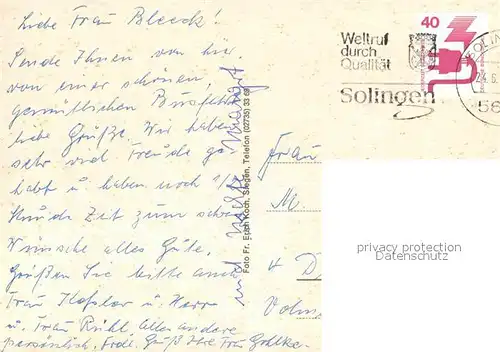 Liebe Frau Bleeck!
Sende Ihnen von hier
von einer schönen,
gemütlichen Busfahrt
liebe Grüße. Wir haben
sehr viel Freude ge-
habt u. haben noch 1/2
Stunde Zeit zum schrei
Wünsche alles Gute.
Grüßen Sie bitte auch
Frau Koßlow u. Herr
u. Frau Rühl. Alles andere
persönlich. Frdl. Gruß Ihre Frau Gohlke
Foto Fr. Erich Koch, Siegen, Telefon (02735) 33 69
Weltruf
durch
Qualität
Solingen
40
SOLIN
24.6.
56
Frau
M.
4 D
privacy protection
Datenschutz